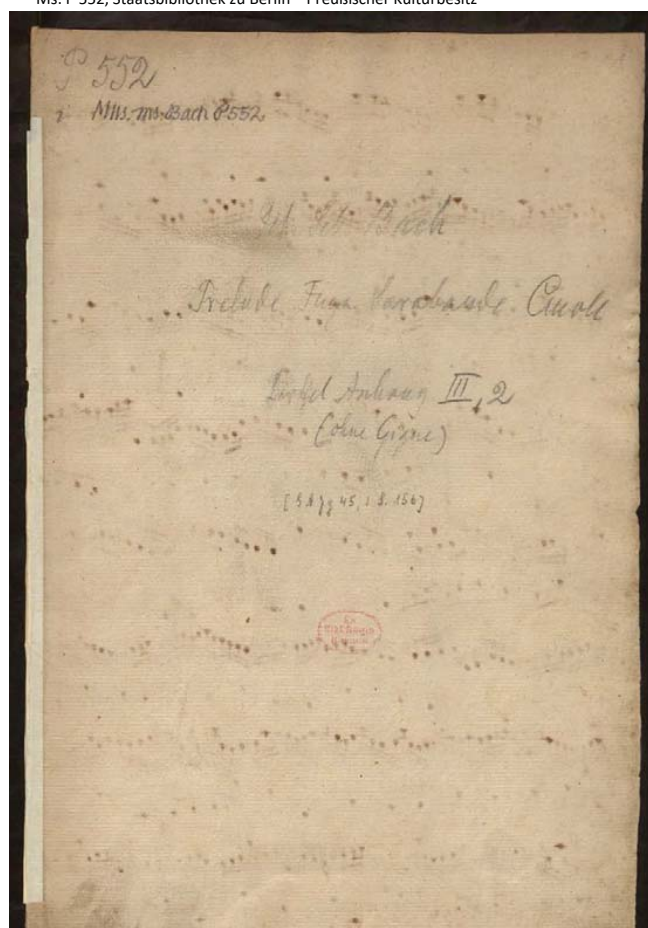 Ms. P 552, Staatsbibliothek zu Berlin – Preußischer Kulturbesitz
P 552
Mus. ms. Bach P 552
Seb. Bach
Prelude Fuga Sarabande Cmoll
Anhang III, 2
(ohne Gigue)
45, 1 S. 156]